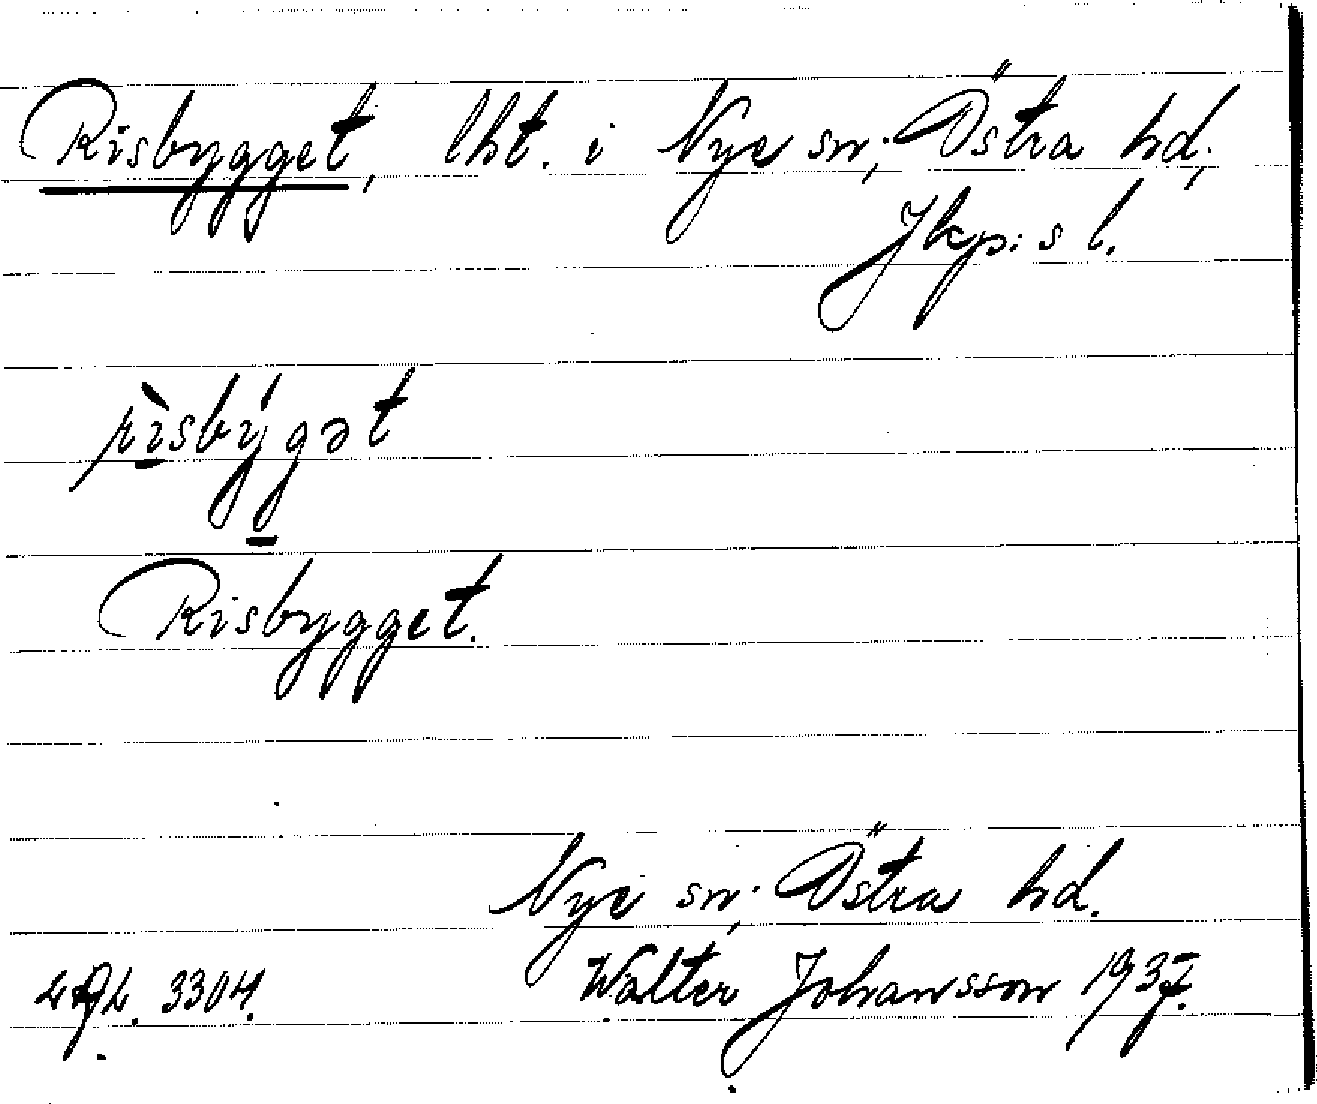 Risbygget, lht. i Nye sn, Östra hd,
Jkp:s l.
rìsbýgət
Risbygget.
Nye sn, Östra hd.
3304. Walter Johansson 1937.